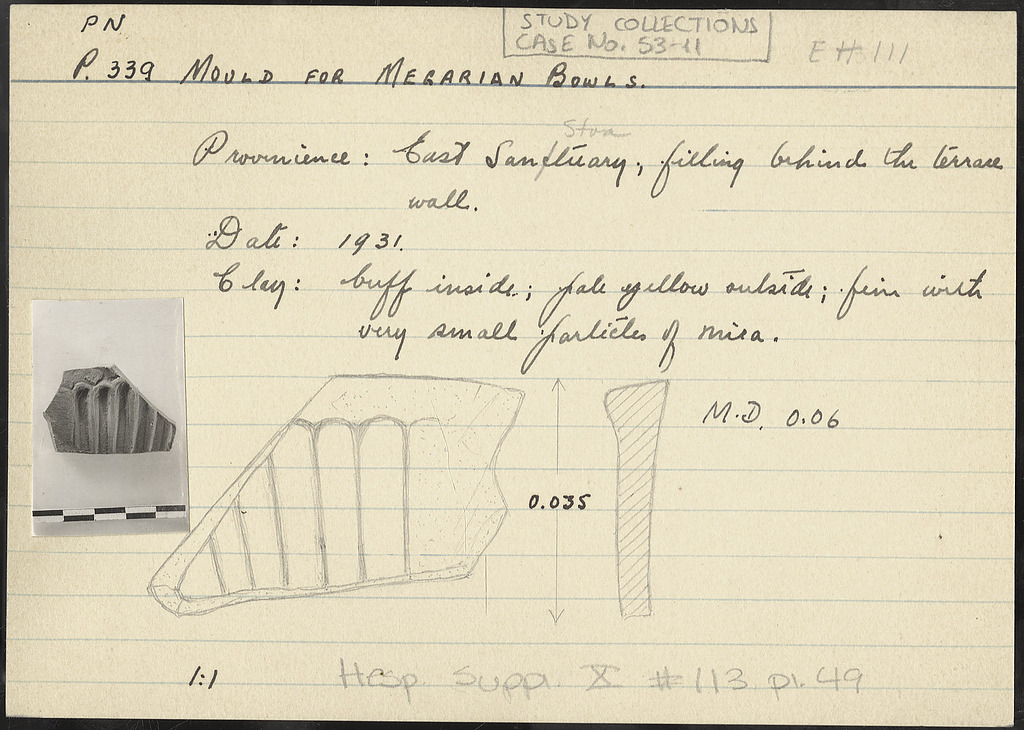 PN
STUDY COLLECTIONS
CASE No. 53-11
E # 111
P. 339 MOULD FOR MEGARIAN BOWLS.
Stoa
Provenience: East Sanctuary; filling behind the terrace
wall.
Date: 1931.
Clay: buff inside; pale yellow outside; fine with
very small particles of mica.
M.D. 0.06
0.035
1:1
Hesp. Suppl. X #113 pl. 49